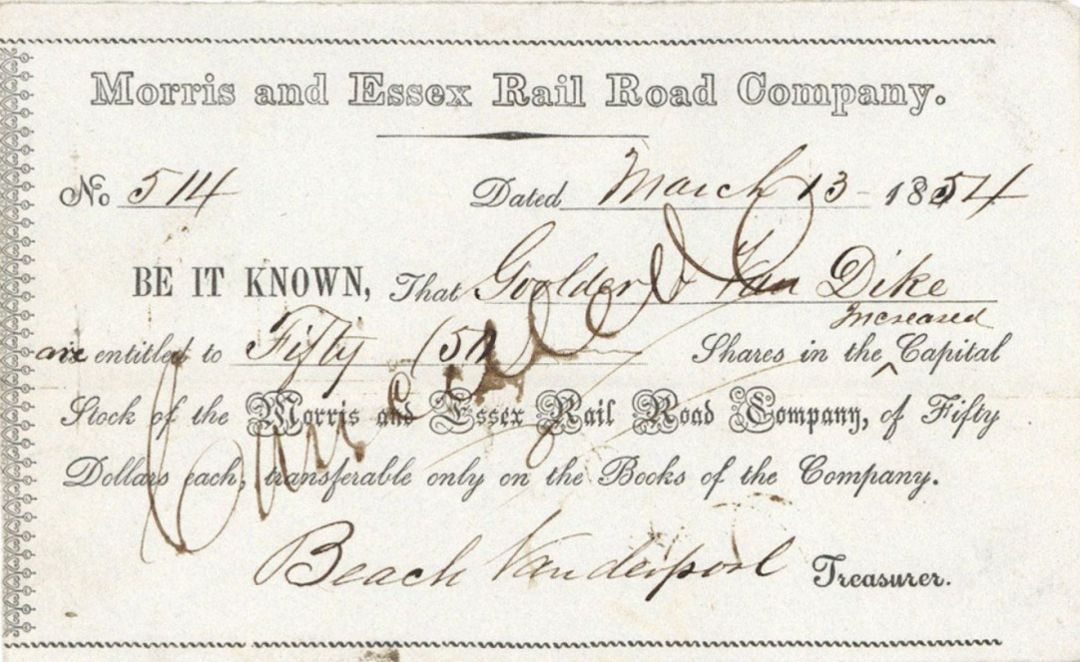 Morris and Essex Rail Road Company.
No 514 Dated March 13 1854
BE IT KNOWN, That Goolder & Van Dike
Increased
are entitled to Fifty (50) Shares in the ^ Capital
Stock of the Morris and Essex Rail Road Company, of Fifty
Dollars each, transferable only on the Books of the Company.
Cancelled
Beach Vanderpool Treasurer.